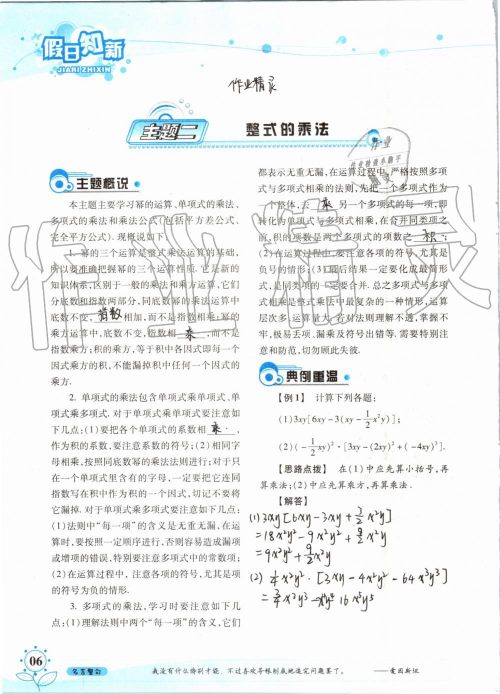 假日知新
JIARI ZHIXIN
作业精灵
主题二 整式的乘法
主题概说
本主题主要学习幂的运算、单项式的乘法、
多项式的乘法和乘法公式(包括平方差公式、
完全平方公式). 现概说如下:
1. 幂的三个运算性质是整式乘法运算的基础,
所以要准确把握幂的三个运算性质. 它是新的
知识体系,区别于一般的乘法和乘方运算,它们
分底数和指数两部分,同底数幂的乘法运算中
底数不变,指数相加,而不是指数相乘;幂的
乘方运算中,底数不变,指数相乘,而不是
指数乘方;积的乘方,等于积中各因式即每一个
因式乘方的积,不能漏掉积中任何一个因式的
乘方.
2. 单项式的乘法包含单项式乘单项式、单
项式乘多项式. 对于单项式乘单项式要注意如
下几点:(1)要把各个单项式的系数相乘,
作为积的系数,要注意系数的符号;(2)相同字
母相乘,按照同底数幂的乘法法则进行;对于只
在一个单项式里含有的字母,一定要把它连同
指数写在积中作为积的一个因式,切记不要将
它漏掉. 对于单项式乘多项式要注意如下几点:
(1)法则中“每一项”的含义是无重无漏,在运
算时,要按照一定顺序进行,否则容易造成漏项
或增项的错误,特别要注意多项式中的常数项;
(2)在运算过程中,注意各项的符号,尤其是项
的符号为负的情形.
3. 多项式的乘法,学习时要注意如下几
点:(1)理解法则中两个“每一项”的含义,它们
都表示无重无漏,在运算过程中,严格按照多项
式与多项式相乘的法则,先把一个多项式作为
一个整体,去乘另一个多项式的每一项,即
转化为单项式与多项式相乘,在合并同类项之
前,积的项数是两个多项式的项数之积;
(2)在运算过程中,要注意各项的符号,尤其是
负号的情形;(3)最后结果一定要化成最简形
式,是同类项的一定要合并. 总之多项式与多项
式相乘是整式乘法中最复杂的一种情形,运算
层次多,运算量大,若对法则理解不透,掌握不
牢,极易丢项、漏乘及符号出错等,需要特别注
意和防范,切勿顾此失彼.
典例重温
【例1】 计算下列各题:
(1)3xy[6xy-3(xy-1/2x²y)];
(2)(-1/2xy)²·[3xy-(2xy)²+(-4xy)³].
【思路点拨】 在(1)中应先算小括号,再
算乘法;(2)中应先算乘方,再算乘法.
【解答】
(1) 3xy[6xy-3xy+3/2x²y]
=18x²y²-9x²y²+9/2x³y²
=9x²y²+9/2x³y²
(2) 1/4x²y²·[3xy-4x²y²-64x³y³]
=3/4x³y³-x⁴y⁴-16x⁵y⁵
06
名言警句
我没有什么特别才能,不过喜欢寻根刨底地追究问题罢了。 ——爱因斯坦